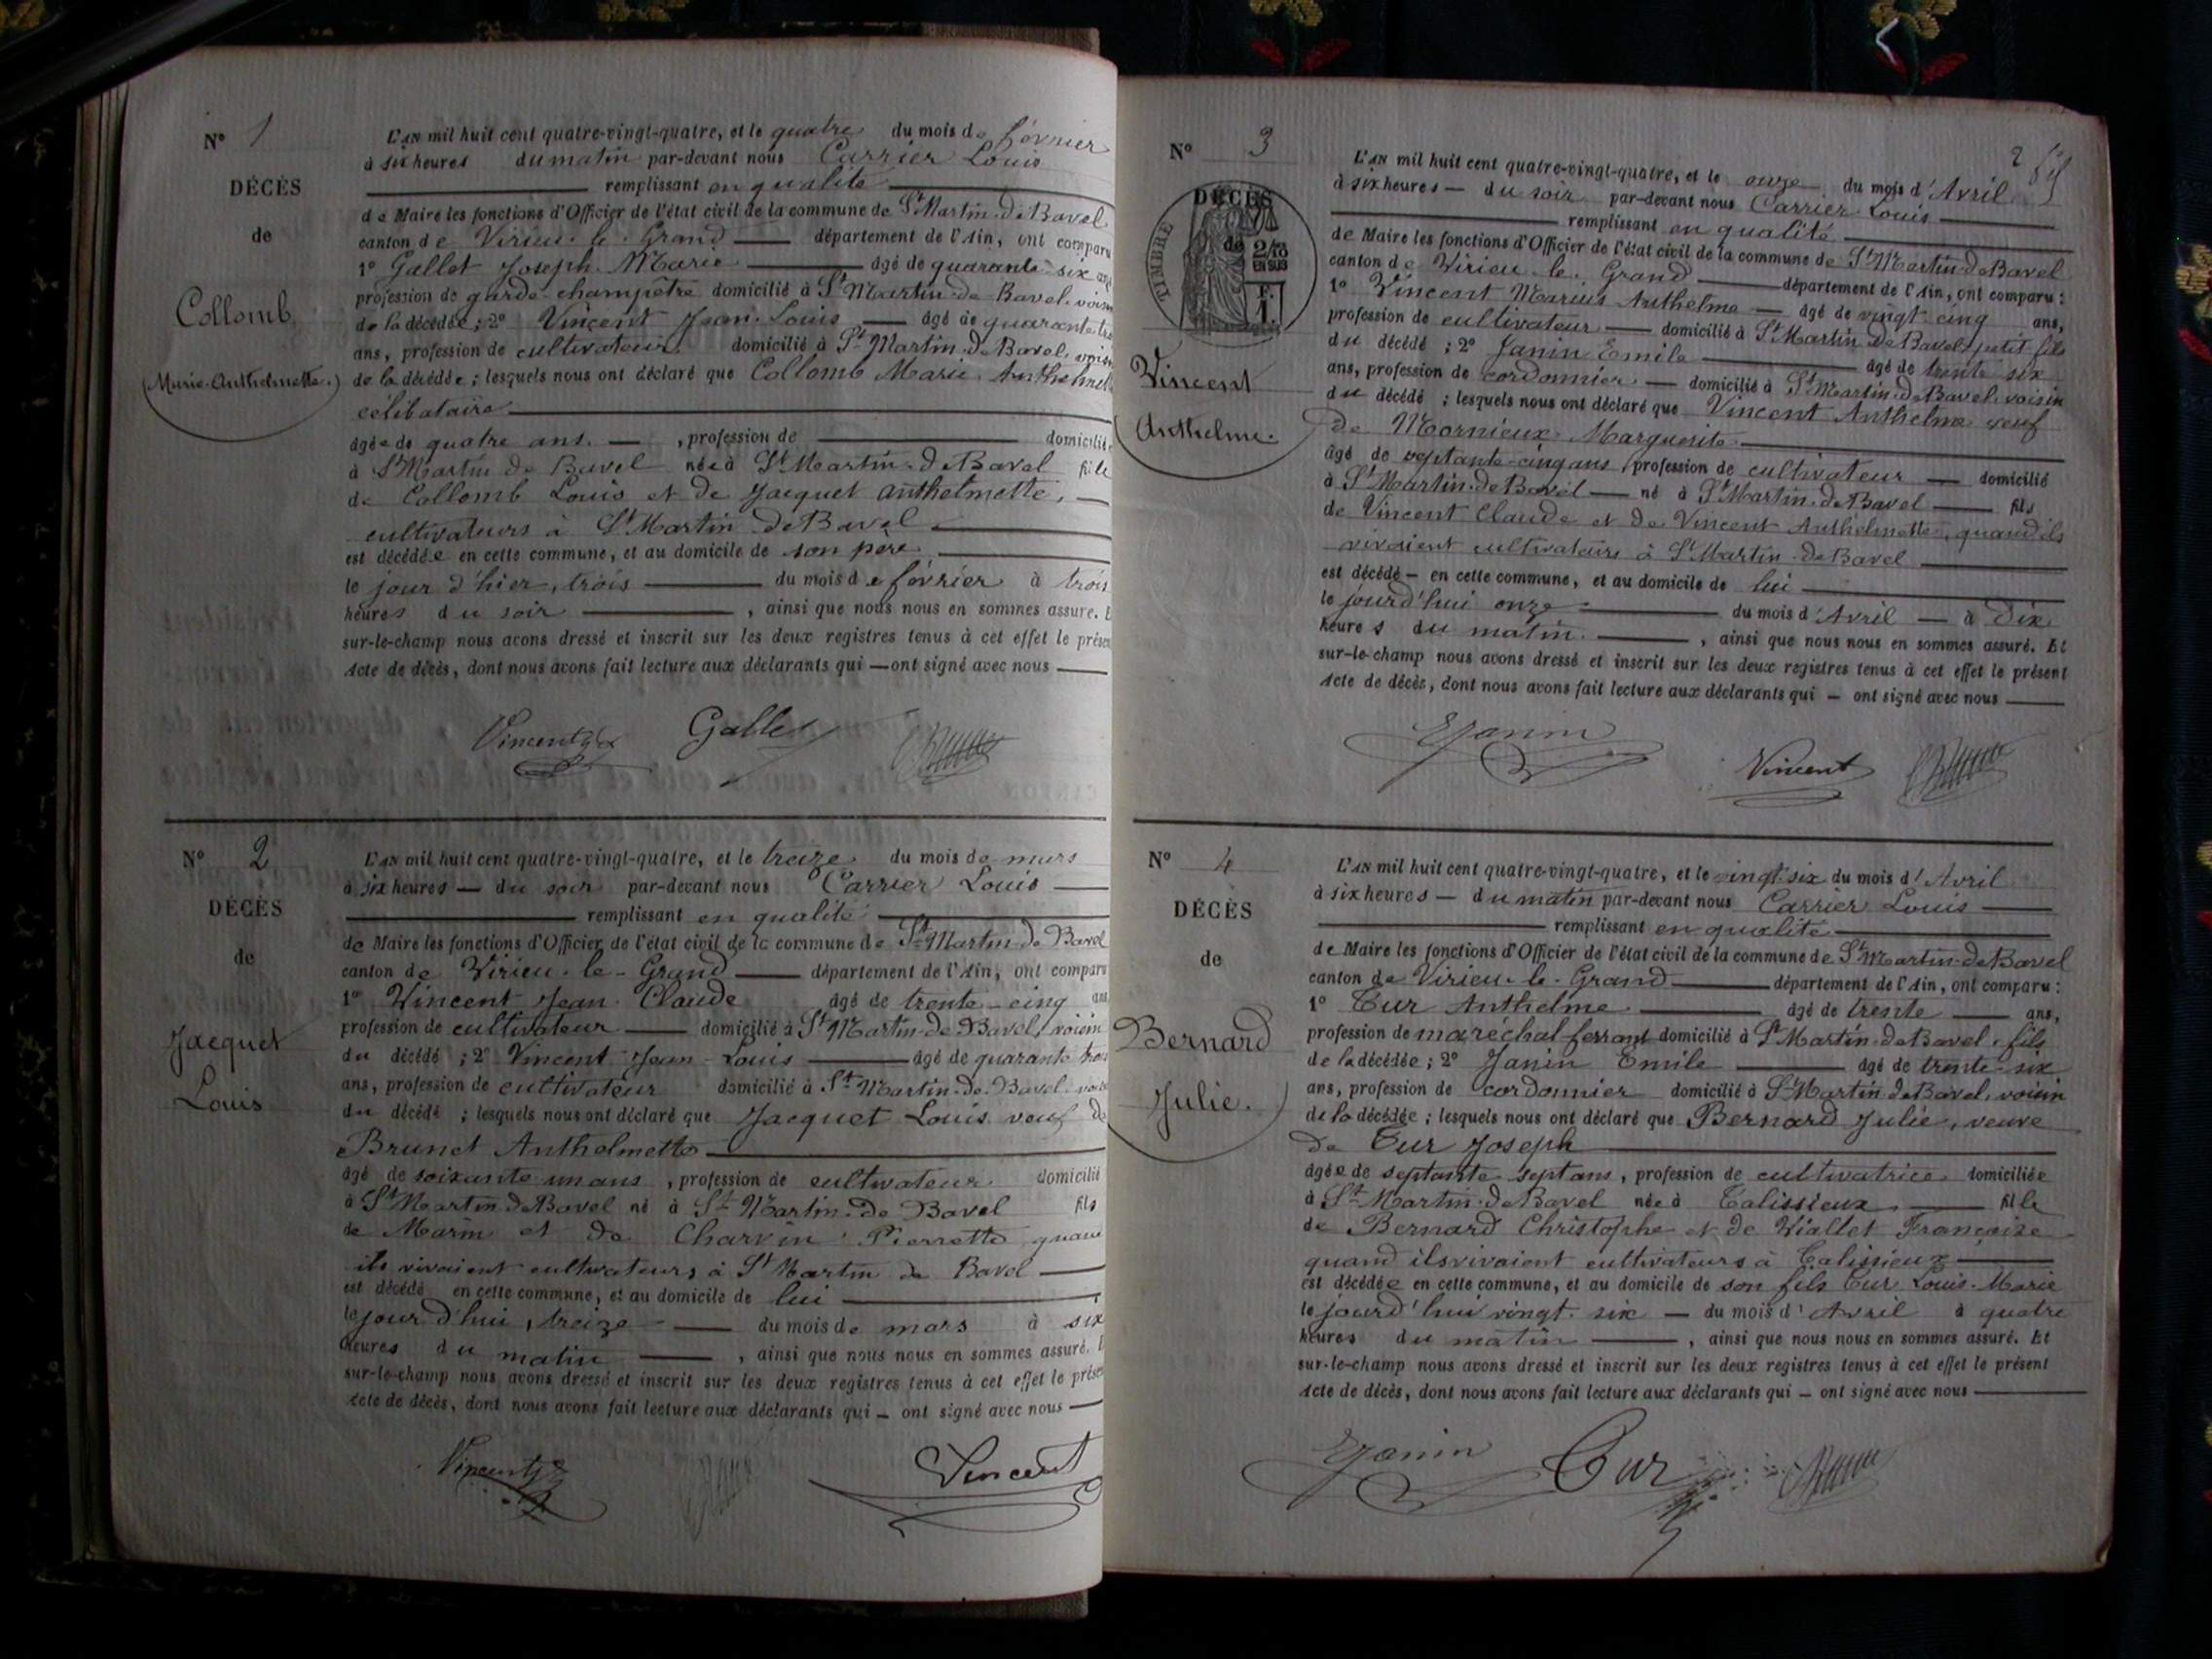 N° 1
DÉCÈS
de
Collomb
(Marie-Anthelmette.)
L'AN mil huit cent quatre-vingt-quatre, et le quatre du mois de février
à six heures du matin par-devant nous Carrier Louis
remplissant en qualité
de Maire les fonctions d'Officier de l'état civil de la commune de St Martin-de Bavel
canton de Virieu-le-Grand département de l'Ain, ont comparu
1° Gallet Joseph-Marie âgé de quarante-six ans
profession de garde-champêtre domicilié à St Martin-de Bavel, voisin
de la décédée ; 2° Vincent Jean-Louis âgé de quarante-tro
ans, profession de cultivateur domicilié à St Martin-de Bavel, voisin
de la décédée ; lesquels nous ont déclaré que Collomb Marie-Anthelmette
célibataire
âgée de quatre ans. , profession de domiciliée
à St Martin de Bavel née à St Martin-de Bavel fille
de Collomb Louis et de Jacquet Anthelmette,
cultivateurs à St Martin de Bavel
est décédée en cette commune, et au domicile de son père
le jour d'hier, trois du mois de février à trois
heures du soir , ainsi que nous nous en sommes assuré. E
sur-le-champ nous avons dressé et inscrit sur les deux registres tenus à cet effet le présen
Acte de décès, dont nous avons fait lecture aux déclarants qui — ont signé avec nous
Vincent Gallet
N° 2
DÉCÈS
de
Jacquet
Louis
L'AN mil huit cent quatre-vingt-quatre, et le treize du mois de mars
à six heures — du soir par-devant nous Carrier Louis
remplissant en qualité
de Maire les fonctions d'Officier de l'état civil de la commune de St Martin-de Bavel
canton de Virieu-le-Grand département de l'Ain, ont comparu
1° Vincent Jean-Claude âgé de trente-cinq ans
profession de cultivateur domicilié à St Martin-de-Bavel, voisin
du décédé ; 2° Vincent Jean-Louis âgé de quarante troi
ans, profession de cultivateur domicilié à St Martin-de-Bavel, voisin
du décédé ; lesquels nous ont déclaré que Jacquet Louis veuf de
Brunet Anthelmette
âgé de soixante un ans , profession de cultivateur domicilié
à St Martin de Bavel né à St Martin-de Bavel fils
de Marin et de Charvin Pierrette quand
ils vivaient cultivateurs à St Martin de Bavel
est décédé en cette commune, et au domicile de lui
le jour d'hui, treize du mois de mars à six
heures du matin , ainsi que nous nous en sommes assuré. E
sur-le-champ nous avons dressé et inscrit sur les deux registres tenus à cet effet le présen
Acte de décès, dont nous avons fait lecture aux déclarants qui — ont signé avec nous
Vincent Vincent
N° 3
DÉCÈS
de
TIMBRE
2/10
EN SUS
Vincent
Anthelme.
2
L'AN mil huit cent quatre-vingt-quatre, et le onze du mois d'Avril
à six heures — du soir par-devant nous Carrier Louis
remplissant en qualité
de Maire les fonctions d'Officier de l'état civil de la commune de St Martin-de Bavel
canton de Virieu-le-Grand département de l'Ain, ont comparu :
1° Vincent Marius Anthelme — âgé de vingt-cinq ans,
profession de cultivateur — domicilié à St Martin de Bavel, petit-fils
du décédé ; 2° Janin Emile âgé de trente six
ans, profession de cordonnier — domicilié à St Martin-de Bavel, voisin
du décédé ; lesquels nous ont déclaré que Vincent Anthelme veuf
de Mornieux Marguerite
âgé de septante-cinq ans, profession de cultivateur — domicilié
à St Martin-de Bavel — né à St Martin-de Bavel — fils
de Vincent Claude et de Vincent Anthelmette, quand ils
vivaient cultivateurs à St Martin-de Bavel
est décédé — en cette commune, et au domicile de lui
le jourd'hui onze du mois d'Avril — à dix
heures du matin , ainsi que nous nous en sommes assuré. Et
sur-le-champ nous avons dressé et inscrit sur les deux registres tenus à cet effet le présent
Acte de décès, dont nous avons fait lecture aux déclarants qui — ont signé avec nous
EJanin Vincent
N° 4
DÉCÈS
de
Bernard
Julie.
L'AN mil huit cent quatre-vingt-quatre, et le vingt-six du mois d'Avril
à six heures — du matin par-devant nous Carrier Louis
remplissant en qualité
de Maire les fonctions d'Officier de l'état civil de la commune de St Martin-de Bavel
canton de Virieu-le-Grand département de l'Ain, ont comparu :
1° Cur Anthelme âgé de trente — ans,
profession de maréchal-ferrant domicilié à St Martin-de Bavel, fils
de la décédée ; 2° Janin Emile âgé de trente-six
ans, profession de cordonnier domicilié à St Martin de Bavel, voisin
de la décédée ; lesquels nous ont déclaré que Bernard Julie, veuve
de Cur Joseph
âgée de septante sept ans, profession de cultivatrice domiciliée
à St Martin-de Bavel née à Talissieux fille
de Bernard Christophe et de Viallet Françoise
quand ils vivaient cultivateurs à Talissieux
est décédée en cette commune, et au domicile de son fils Cur Louis-Marie
le jourd'hui vingt-six — du mois d'Avril à quatre
heures du matin , ainsi que nous nous en sommes assuré. Et
sur-le-champ nous avons dressé et inscrit sur les deux registres tenus à cet effet le présent
Acte de décès, dont nous avons fait lecture aux déclarants qui — ont signé avec nous
EJanin Cur